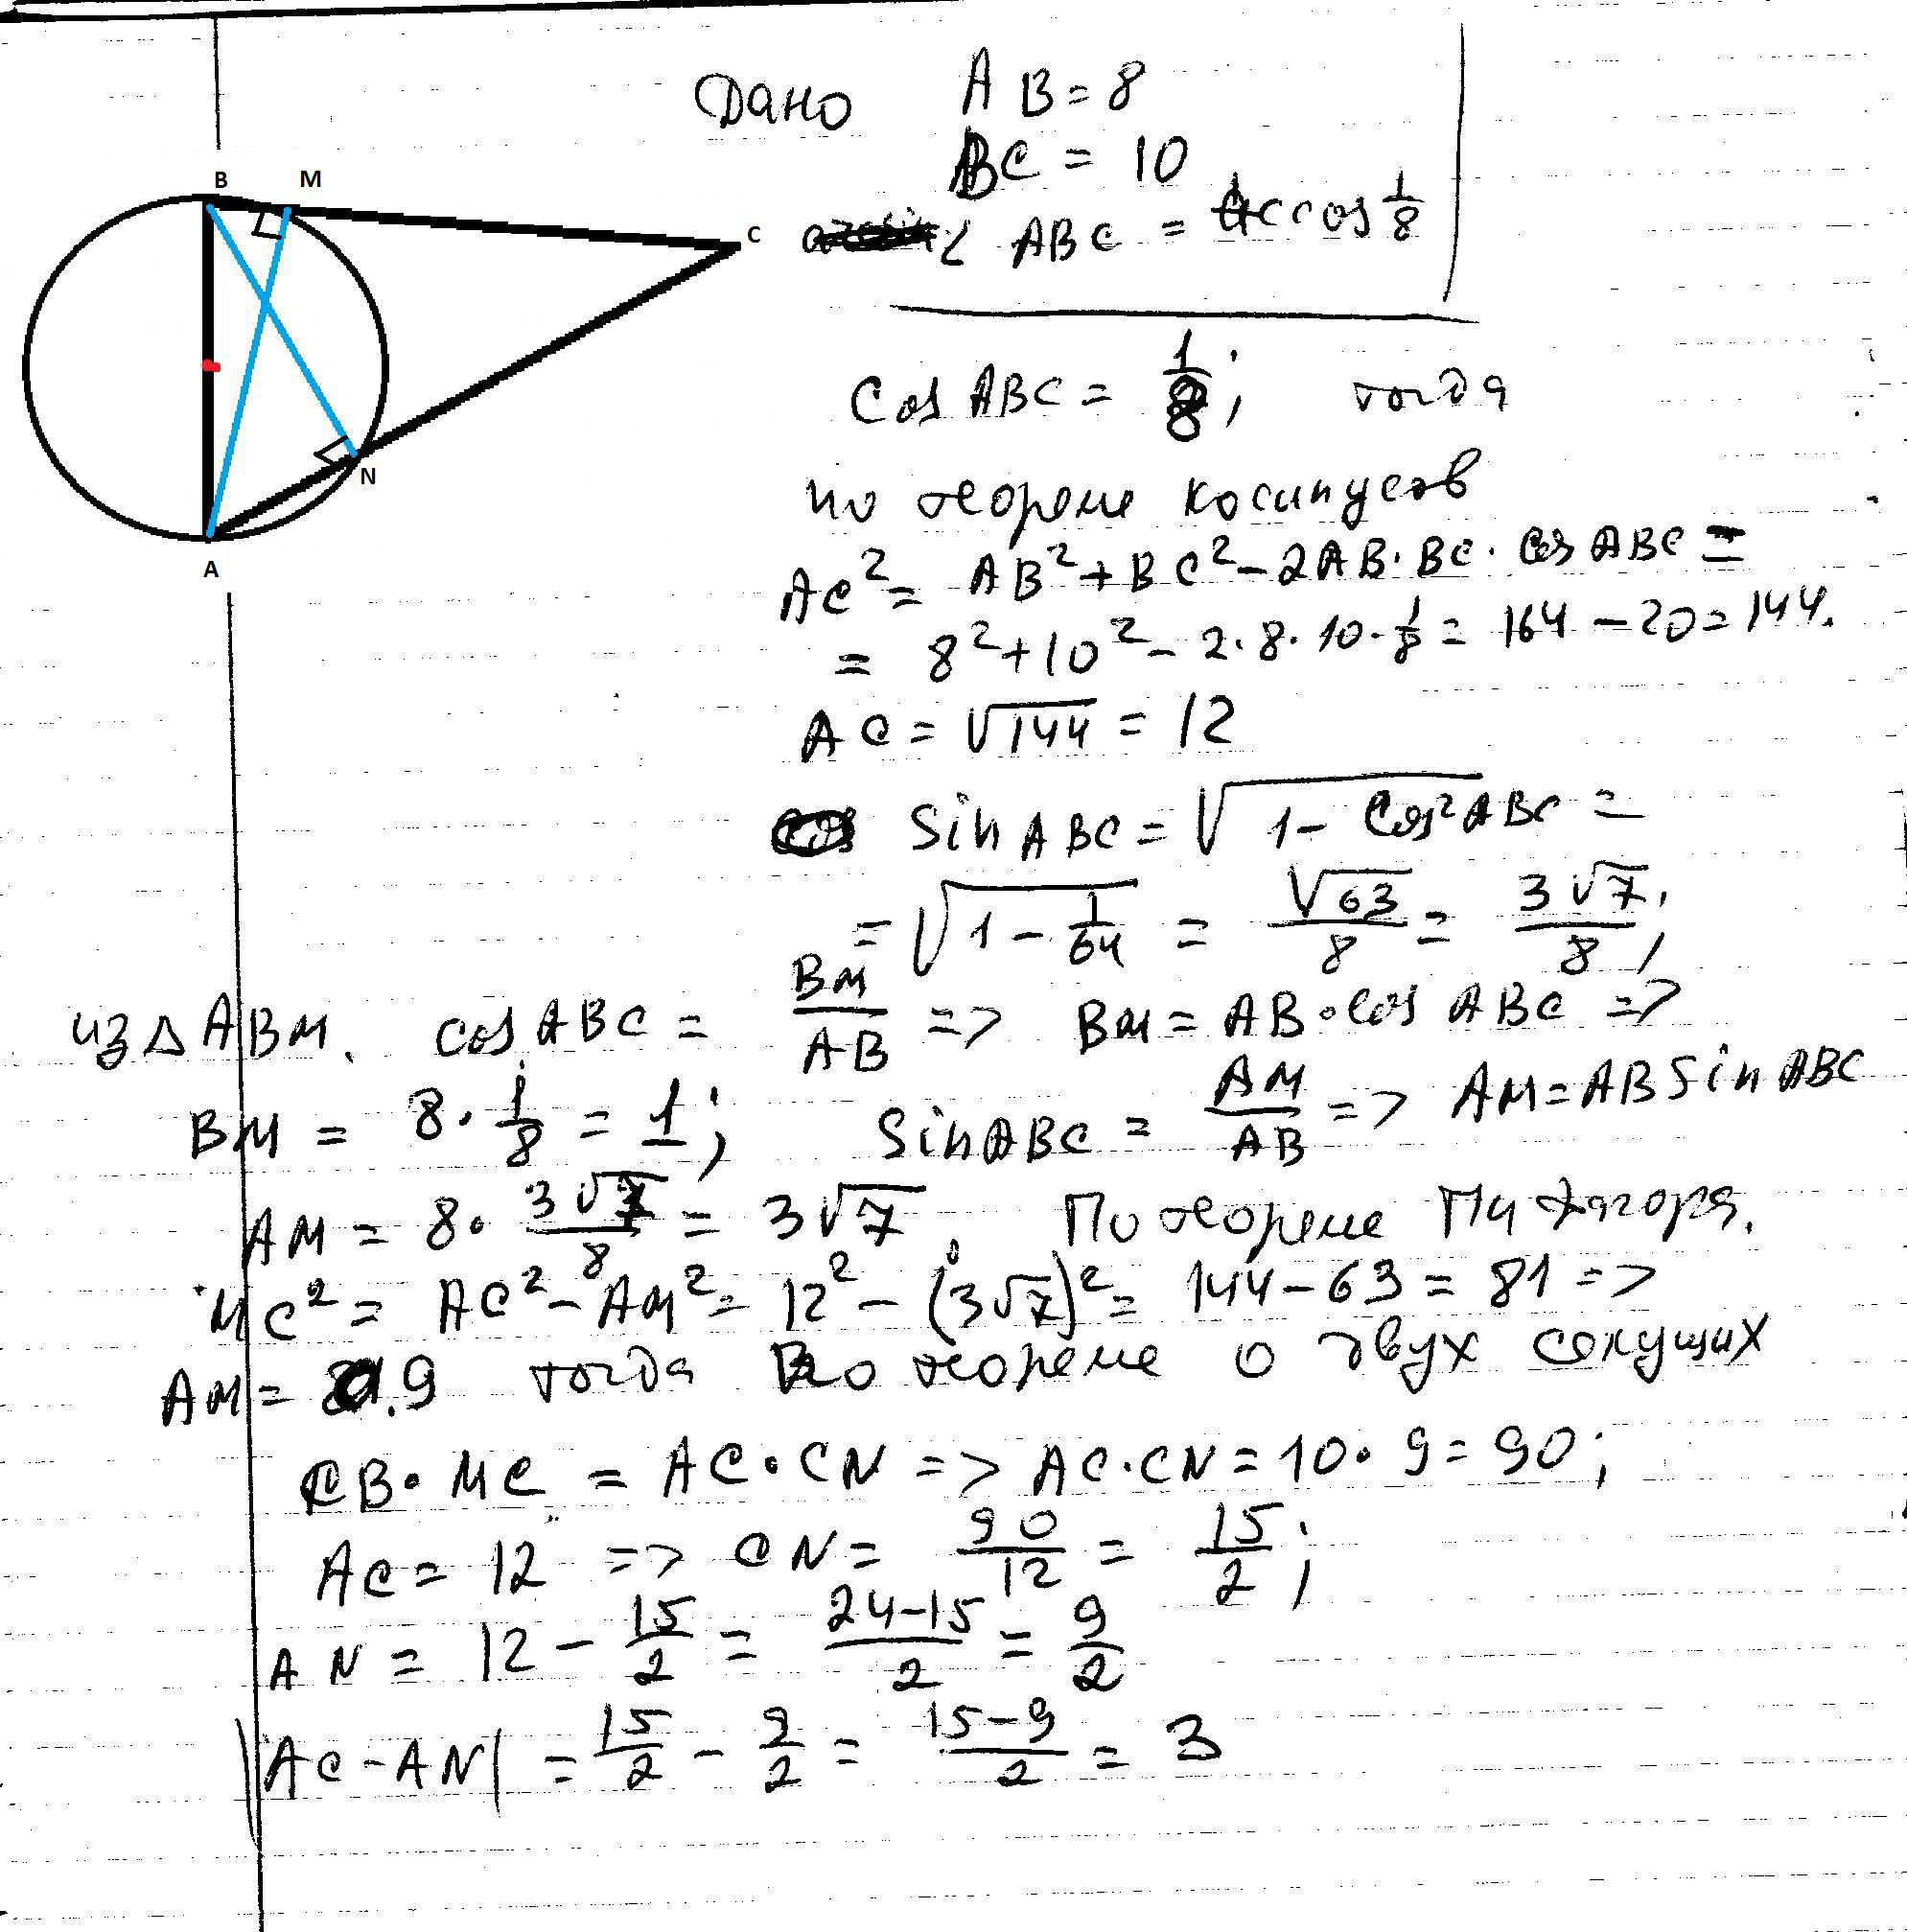 Дано AB = 8
BC = 10
∠ ABC = arccos 1/8
B M
C
N
A
Cos ABC = 1/8; тогда
по теореме косинусов
AC² = AB² + BC² - 2AB · BC · Cos ABC =
= 8² + 10² - 2 · 8 · 10 · 1/8 = 164 - 20 = 144.
AC = √144 = 12
Sin ABC = √(1 - Cos² ABC) =
= √(1 - 1/64) = √63/8 = 3√7/8;
из △ ABM. cos ABC = BM/AB => BM = AB · cos ABC =>
BM = 8 · 1/8 = 1; Sin ABC = AM/AB => AM = AB Sin ABC
AM = 8 · 3√7/8 = 3√7. По теореме Пифагора.
MC² = AC² - AM² = 12² - (3√7)² = 144 - 63 = 81 =>
AM = 9 тогда по теореме о двух секущих
CB · MC = AC · CN => AC · CN = 10 · 9 = 90;
AC = 12 => CN = 90/12 = 15/2;
AN = 12 - 15/2 = (24-15)/2 = 9/2
|AC - AN| = 15/2 - 9/2 = (15-9)/2 = 3